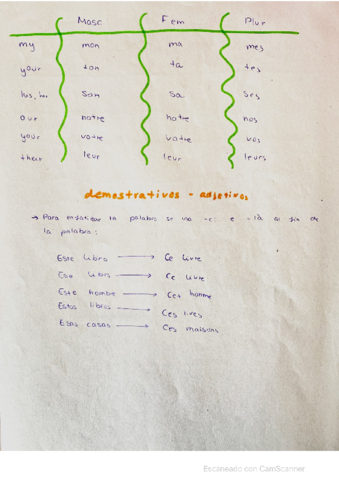 Masc Fem Plur
my mon ma mes
your ton ta tes
his, her son sa ses
our notre notre nos
your votre votre vos
their leur leur leurs
demostrativos - adjetivos
→ Para enfatizar la palabra se usa -ci e -là al fin de
la palabra:
Este libro → Ce livre
Ese libro → Ce livre
Este hombre → Cet homme
Estos libros → Ces livres
Esas casas → Ces maisons
Escaneado con CamScanner